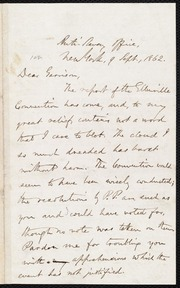 Anti Slavery Office,
New York, 9 Sept, 1862.
Dear Garrison,
The report of the Ellenville
Convention has come, and, to my
great relief, contains not a word
that I care to blot. The cloud I
so much dreaded has burst
without harm. The Convention will
seem to have been wisely conducted;
the resolutions by P.P. are such as
you and I could have voted for,
though no vote was taken on them.
Pardon me for troubling you
with apprehensions which the
event has not justified.